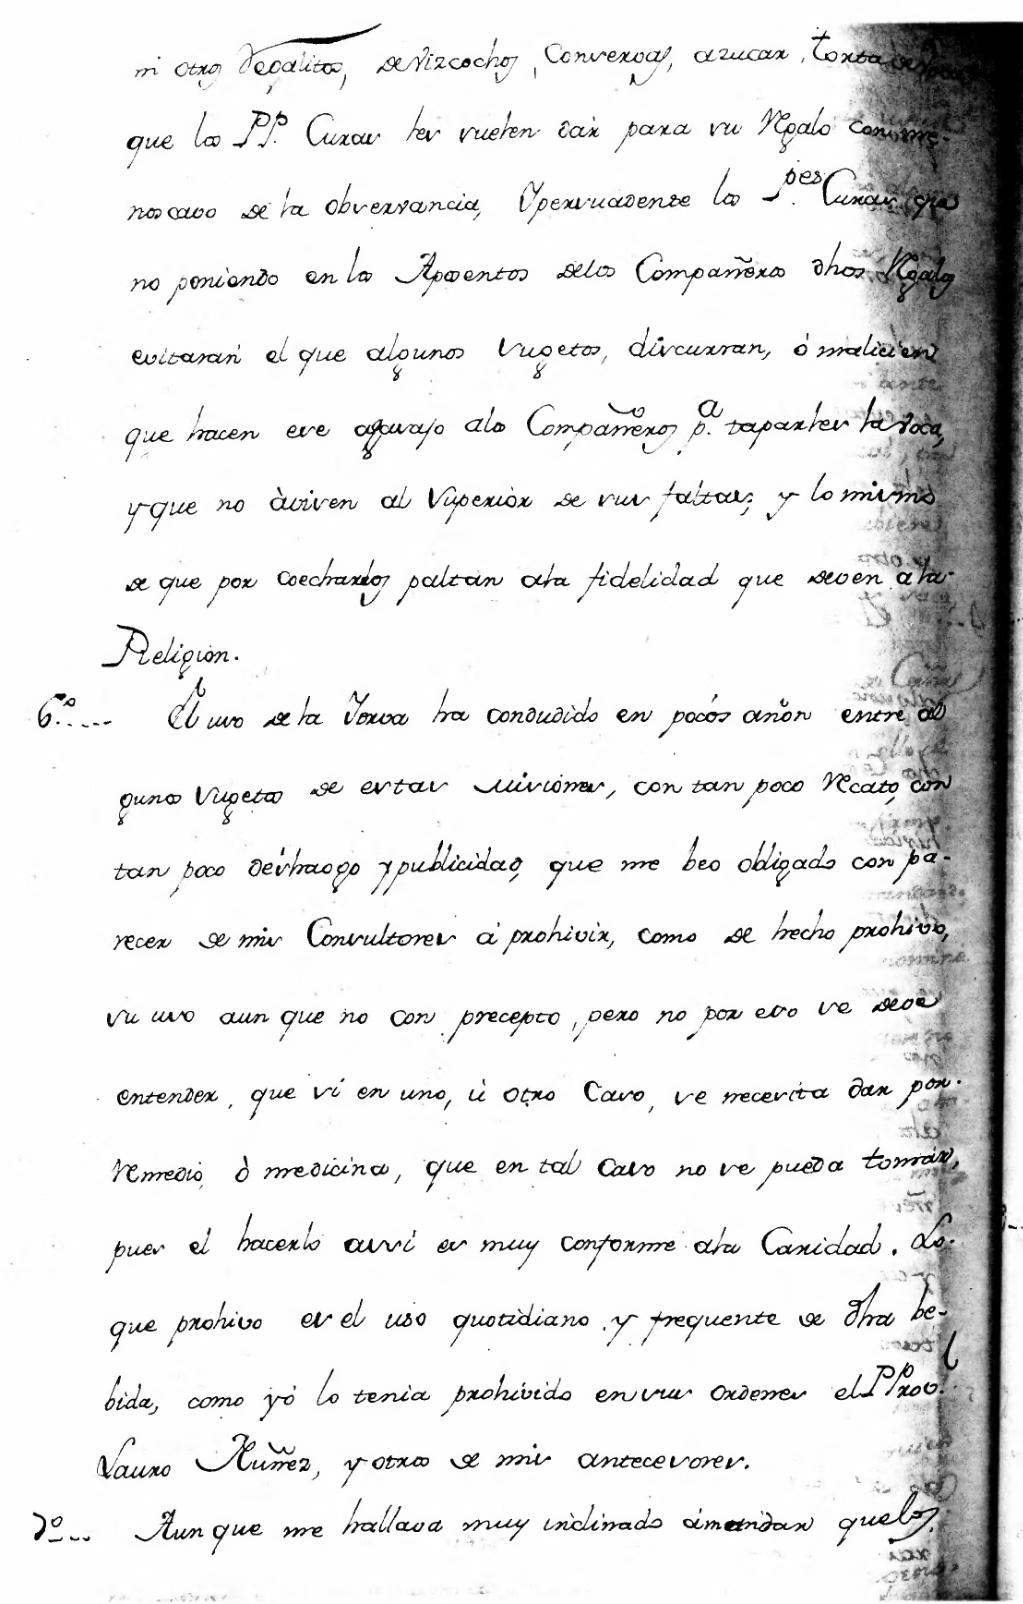 ni otros Regalitos, de Vizcochos, Conservas, azucar, torta de
que los PP. Curas les suelen dar para su Regalo con me-
noscavo de la observancia, Y persuadense los P.es Curas que
no poniendo en los Aposentos de los Compañeros dhos Regalos
evitaran el que algunos Sugetos, discurran, ó malicien
que hacen ese agasajo a los Compañeros p.a taparles la voca,
y que no àvisen al Superiór de sus faltas; y lo mismo
de que por coecharlos faltan a la fidelidad que deven a la
Religion.
6.º---- El uso de la Yerva ha cundido en pocós años entre al
gunos Sugetos de estas Misiones, con tan poco Recato, con
tan poco desahogo y publicidad, que me beo obligado con pa-
recer de mis Consultores á prohivir, como de hecho prohivo,
su uso aun que no con precepto, pero no por eso se deve
entender, que si en uno, ù otro Caso, se necesita dar por
Remedio, ò medicina, que en tal Caso no se pueda tomar,
pues el hacerlo assi es muy conforme a la Caridad. Lo
que prohivo es el uso quotidiano y frequente de dha be-
bida, como yá lo tenia prohivido en sus ordenes el P. Prov.l
Lauro Nuñez, y otros de mis antecesores.
7º--- Aun que me hallava muy inclinado á mandar que los